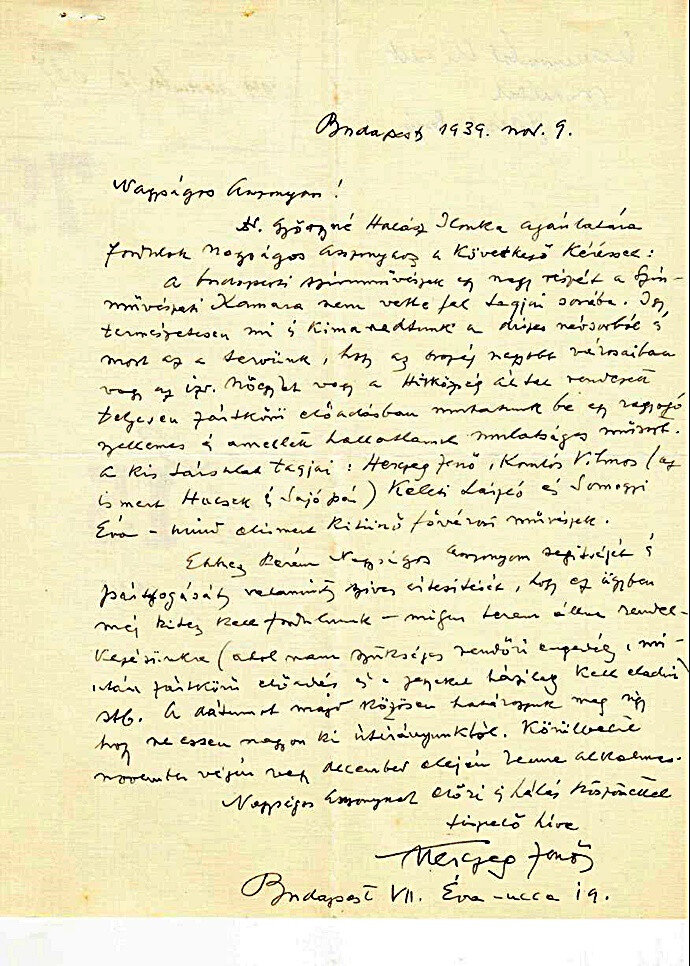 Budapest, 1939. nov. 9.
Nagyságos Asszonyom!
Dr. Györgyné Halász Ilonka ajánlatára
fordulok Nagyságos Asszonyhoz a következő kéréssel:
A budapesti színművészek egy nagy részét a Szín-
művészeti Kamara nem vette fel tagjai sorába. Így
természetesen mi is kimaradtunk a díszes névsorból és
most az a tervünk, hogy az ország nagyobb városaiban
vagy az izr. Nőegylet vagy a Hitközség által rendezett
teljesen zártkörű előadásban mutatunk be egy ragyogó
szellemes és amellett hallatlanul mulatságos műsort.
A kis társulat tagjai: Herczeg Jenő, Komlós Vilmos (az
ismert Hacsek és Sajó pár) Keleti László és Somogyi
Éva – mind elismert kitünő fővárosi művészek.
Ehhez kérem Nagyságos Asszonyom segítségét és
pártfogását, valamint szíves értesítését, hogy ez ügyben
még kihez kell fordulnunk – milyen terem állna rendel-
kezésünkre (ahol nem szükséges rendőri engedély, mi-
után zártkörű előadás és a jegyeket házilag kell eladni)
stb. A dátumot majd közösen határozzuk meg úgy
hogy ne essen nagyon ki útirányunkból. Körülbelül
november végén vagy december elején lenne alkalmas.
Nagyságos Asszonynak előre is hálás köszönettel
tisztelő híve
Herczeg Jenő
Budapest VII. Éva-ucca 19.